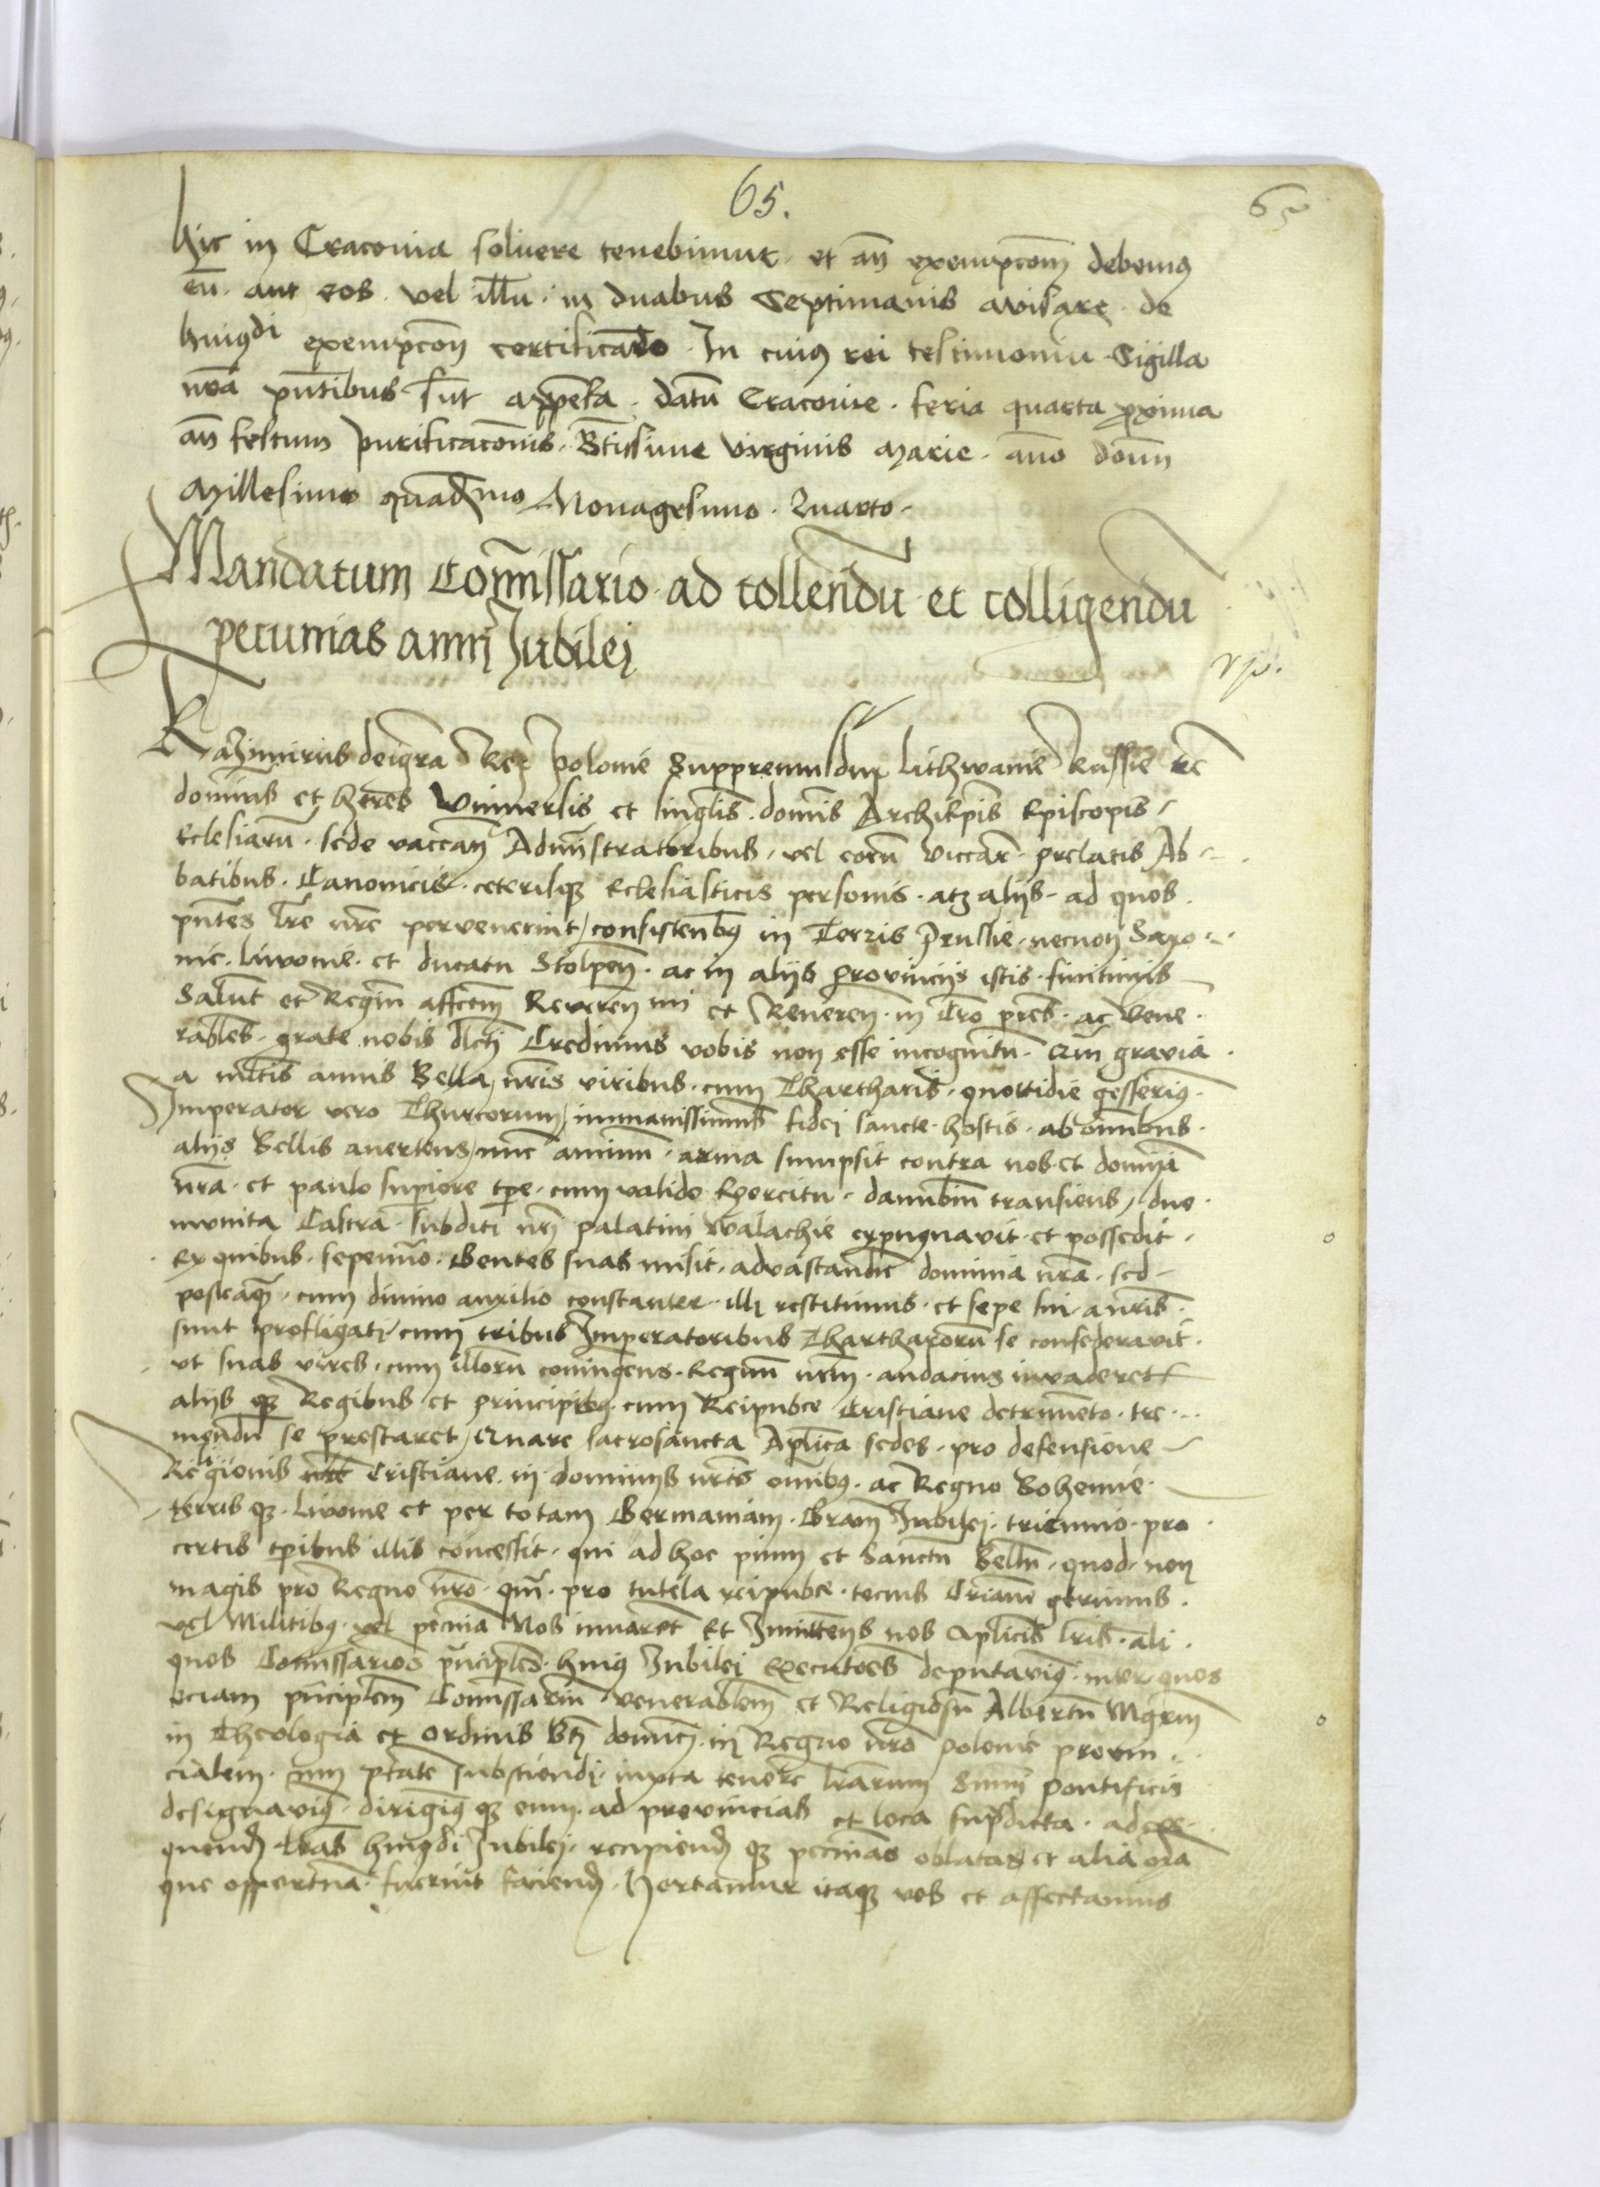 65.
65
hic in Cracovia solvere tenebimur et an̄ exempcom̄ debemus
eū. aut eos. vel illū. in duabus Septimanis avisare. de
huiusdi exempcon̄ certificando. In cuius rei testimoniū Sigilla
nr̄a pn̄tibus sūt appēsa. datū Cracovie. feria quarta proxima
an̄ festum purificacōnis. Btissime virginis Marie. anō domn̄
Millesimo quadmo Nonagesimo. Quarto.
Mandatum Com̄issario ad tollendū et colligendū
pecunias anni Jubilei
Kazimirus deigrā Rex Polonie Suppremus dux Lithwanie Russie Ec̄
dominus et heres Universis et singlis. domis Archiepis Episcopis
Eclesiarū. sede vaccan̄ Administratoribus. vel eorū viccar̄. prelatis Ab
batibus. Canonicis. ceterisque Eclesiasticis personis. atque alijs ad quos.
pn̄tes lr̄e nr̄e pervenerint, consistentibus in Terris Prussie. necnon Saxo
nie. Livonie. et ducatu Stolpen̄. ac in alijs provincijs istis. finitimis
Salut̄ et Regm̄ affcēm Reveren mi et Reveren. in Cro pres. ac vene.
rables. grate nobis dlcti Credimus vobis non esse incognitū. Qm̄ gravia
a multis annis Bella, nr̄is viribus. cum Thartharis. quottidie gesserimus.
Imperator vero Thurcorum, inmanissimus fidei sancte. hostis. ab om̄ibus.
alijs Bellis avertens, nunc animū. arma sumpsit contra nos et dominia
nr̄a. et paulo supiore tpe. cum valido Exercitu. danubiū transiens, duo.
munita Castra. subditi nr̄i palatini Walachie expugnavit. et possedit.
Ex quibus. sepenūo. Gentes suas misit. advastandū dominia nr̄a. sed
posteaquam. cum divino auxilio constanter. illi restitimus. et sepe sui. anr̄is.
sunt profligati, cum tribus Imperatoribus Thartharorū se confederavit.
ut suas vires. cum illorū coniungens. Regnū nr̄m. audacius invaderet
alijs que Regibus et principibus. cum Reipubce Cristiane detrimēto. tre.
mendū se prestaret, Quare sacrosancta Aplica sedes. pro defensione
Religionis Cristiane in dominijs nr̄is om̄ibus. ac Regno Bohemie.
terris que. Livonie et per totam Germaniam. Gram̄ Jubilei. triennio. pro
certis tpibus illis concessit. qui ad hoc pium et Sanctū Bellū. quod. non
magis pro Regno nr̄o. qm̄. pro tutela reipubce. tocius Criane gerimus.
vel Militibus. vel pecunia Nos iuvaret Et Inniten̄s nos Aplicis lr̄is. ali
quos Com̄issarios pn̄ciples. huius Jubilei executores deputavimus. inter quos
eciam pn̄ciplem Com̄issariū. venerablem et Religiosū Albertū Mgrm̄
in Theologia et ordinis Bti dominici. in Regno nr̄o Polonie provin
cialem. cum ptate Substiendi. iuxta tenore lr̄arum Sum̄i pontificis
designavimus. dirigimus que eum. ad provincias et loca supdicta. ad
quend lr̄as huiusdi Jubilei. recipiend que pecunias oblatas et alia om̄a
que oppertuna. fuerint faciend. Hortamur itaque vos et affectamus